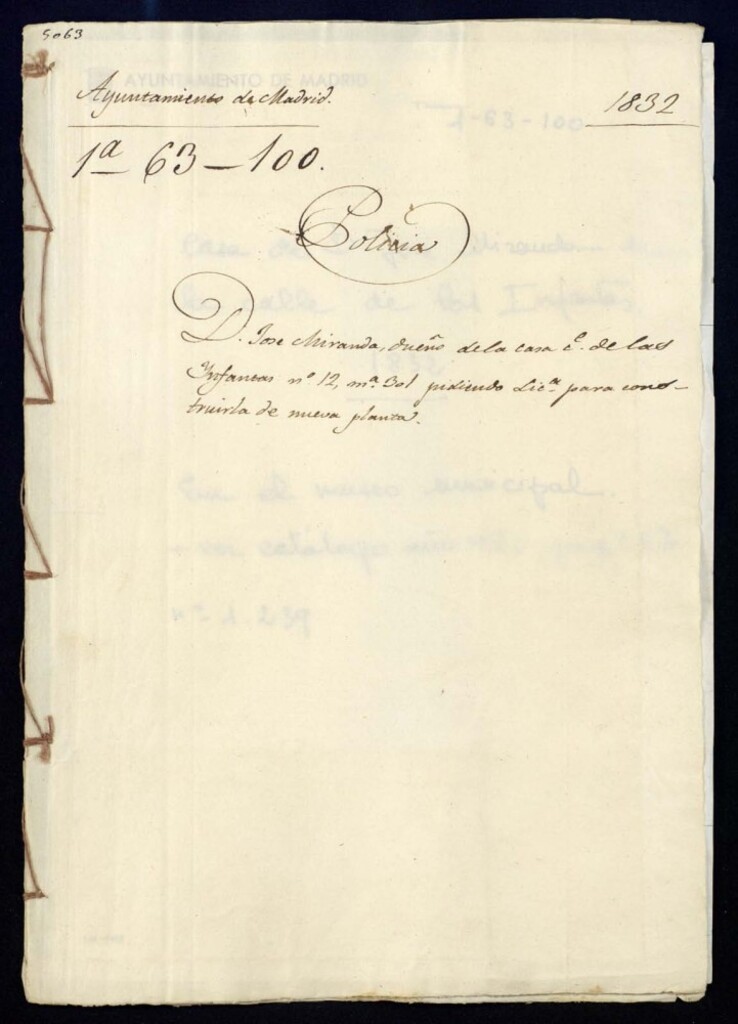 5063
AYUNTAMIENTO DE MADRID
Ayuntamiento de Madrid.
1832
1-63-100
1ª 63-100.
Policia
D. Jose Miranda, dueño de la casa c.e de las
Infantas nº 12, mª 301 pidiendo Lic.ª para cons-
truirla de nueva planta.